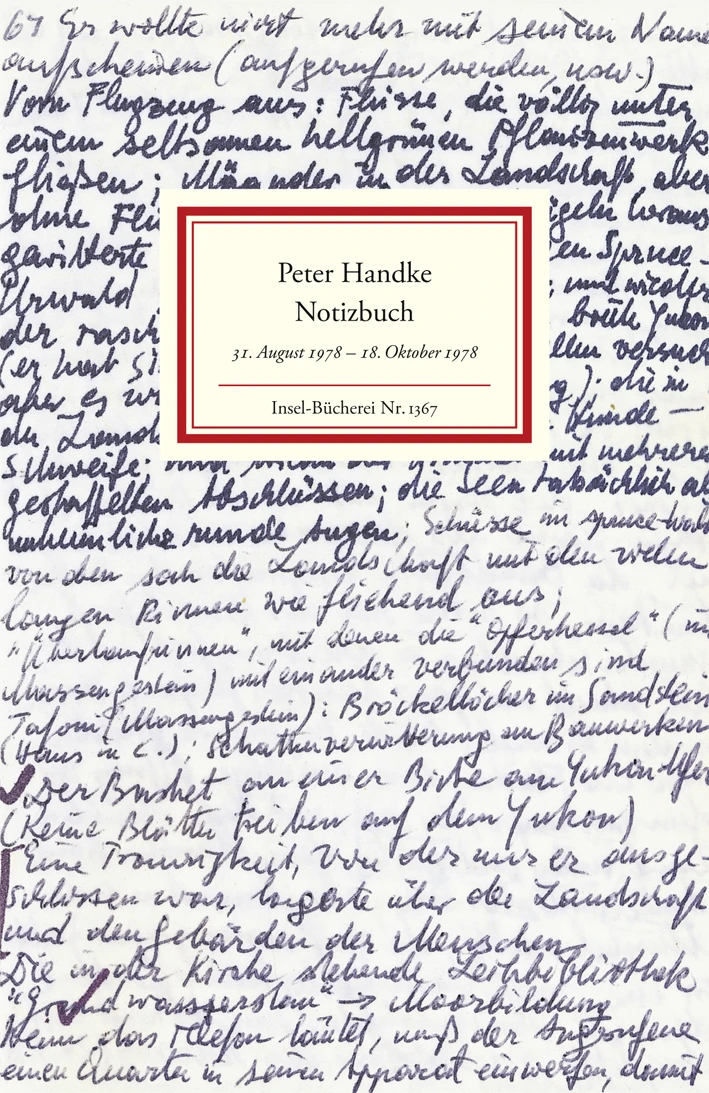 67 Er wollte nicht mehr mit seinem Name
aufscheinen (aufgerufen werden, usw.)
Vom Flugzeug aus: Flüsse, die völlig unter
einem seltsamen hellgrünen Pflanzenwerk
fließen; Mäander in der Landschaft, aber
ohne Flü
geln heraus
gewitterte
en Spruce-
Urwald
und wieder
der rasch
breite Yukon
(er hat si
versuch
aber es
die in
der Land
Hunde —
Schweife
mit mehreren
gestaffelten Abschlüssen; die Seen tatsächlich als
unheimliche runde Augen; Schüsse im spruce-wald
von den sah die Landschaft mit den vielen
langen Rinnen wie fliehend aus;
"Überlaufrinnen", mit denen die "Opferkessel" (im
Massengestein) miteinander verbunden sind
Tafoni (Massengestein): Bröckellöcher im Sandstein
(Haus in C.); Schattenverwitterung an Bauwerken
Der Basket an einer Birke am Yukon-Ufer
(Keine Blätter treiben auf dem Yukon)
Eine Traurigkeit, von der nur er ausge-
schlossen war, lagerte über der Landschaft
und den Gebärden der Menschen
Die in der Kirche stehende Leihbibliothek
"Grundwasserstau" → Moorbildung
Wenn das Telefon läutet, muß der Angerufene
einen Quarter in seinen Apparat einwerfen, damit
Peter Handke
Notizbuch
31. August 1978 – 18. Oktober 1978
Insel-Bücherei Nr. 1367